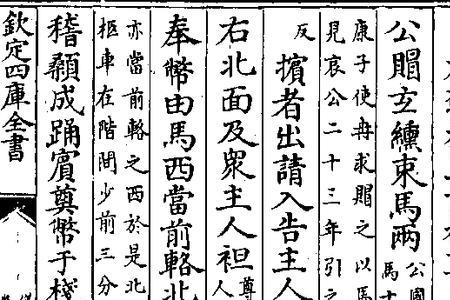 公賵玄纁束馬兩
公國
馬士
康子使冉求賵之以馬
見哀公二十三年引之
反
擯者出請入告主人
右北面及衆主人袒
尊
奉幣由馬西當前輅北
亦當前輅之西於是北
柩車在階間少前三分
稽顙成踊賓奠幣于棧
欽定四庫全書